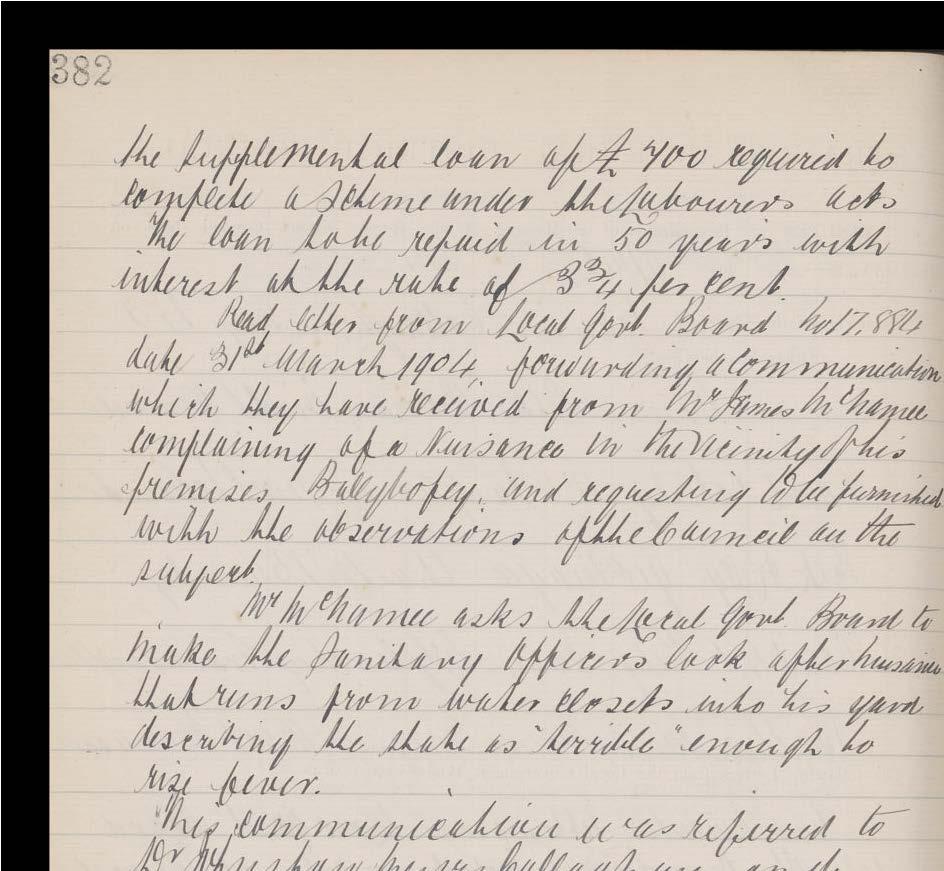 382
the supplemental loan of £700 required to
complete a Scheme under the Labourers acts
The loan to be repaid in 50 years with
interest at the rate of 3 3/4 per cent.
Read letter from Local Govt. Board No 17,884
date 31st March 1904, forwarding a Communication
which they have received from Mr James McNamee
complaining of a Nuisance in the Vicinity of his
premises Ballybofey, and requesting to be furnished
with the observations of the Council on the
subject.
Mr McNamee asks the Local Govt. Board to
make the Sanitary Officers look after nuisance
that runs from water closets into his yard
describing the state as "terrible" enough to
rise fever.
This communication was referred to
Dr